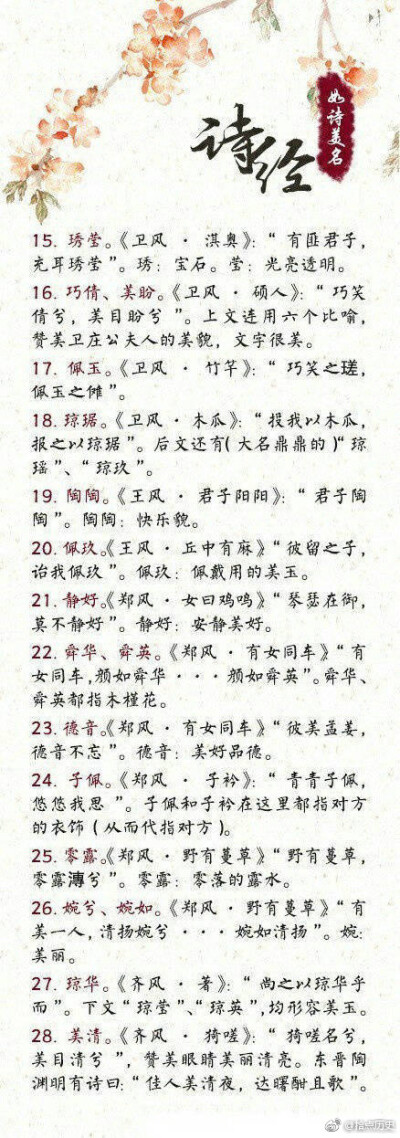 如诗美名
诗经
15. 琇莹。《卫风 · 淇奥》：“ 有匪君子，
充耳琇莹 ”。琇：宝石。莹：光亮透明。
16. 巧倩、美盼。《卫风 · 硕人》：“ 巧笑
倩兮，美目盼兮 ”。上文连用六个比喻，
赞美卫庄公夫人的美貌，文字很美。
17. 佩玉。《卫风 · 竹竿》：“ 巧笑之瑳，
佩玉之傩 ”。
18. 琼琚。《卫风 · 木瓜》：“投我以木瓜，
报之以琼琚 ”。后文还有（ 大名鼎鼎的）“ 琼
瑶 ”、“ 琼玖 ”。
19. 陶陶。《王风 · 君子阳阳》：“ 君子陶
陶 ”。陶陶：快乐貌。
20. 佩玖。《王风 · 丘中有麻》“ 彼留之子，
诒我佩玖 ”。佩玖：佩戴用的美玉。
21. 静好。《郑风 · 女曰鸡鸣》“ 琴瑟在御，
莫不静好 ”。静好：安静美好。
22. 舜华、舜英。《郑风 · 有女同车》“ 有
女同车，颜如舜华 · · · 颜如舜英 ”。舜华、
舜英都指木槿花。
23. 德音。《郑风 · 有女同车》“ 彼美孟姜，
德音不忘 ”。德音：美好品德。
24. 子佩。《郑风 · 子衿》：“ 青青子佩，
悠悠我思 ”。子佩和子衿在这里都指对方
的衣饰（ 从而代指对方）。
25. 零露。《郑风 · 野有蔓草》“ 野有蔓草，
零露漙兮 ”。零露：零落的露水。
26. 婉兮、婉如。《郑风 · 野有蔓草》“ 有
美一人，清扬婉兮 · · · 婉如清扬 ”。婉：
美丽。
27. 琼华。《齐风 · 著》：“ 尚之以琼华乎
而 ”。下文 “ 琼莹 ”、“ 琼英 ”，均形容美玉。
28. 美清。《齐风 · 猗嗟》：“ 猗嗟名兮，
美目清兮 ”，赞美眼睛美丽清亮。东晋陶
渊明有诗曰：“ 佳人美清夜，达曙酣且歌 ”。